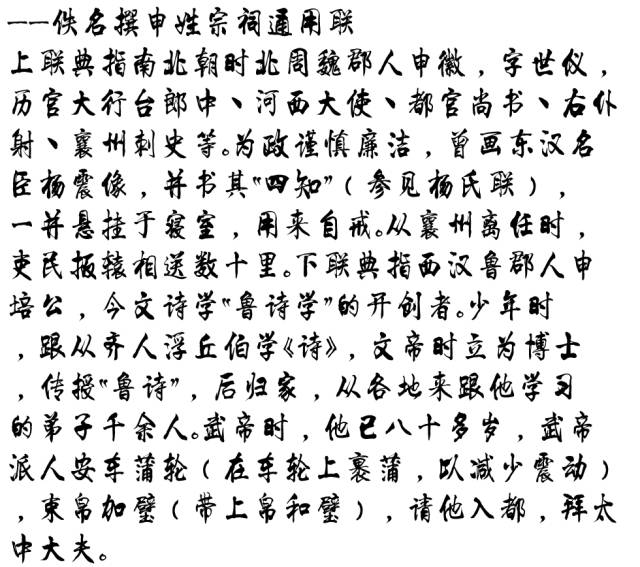 ——佚名撰申姓宗祠通用联
上联典指南北朝时北周魏郡人申徽，字世仪，
历官大行台郎中、河西大使、都官尚书、右仆
射、襄州刺史等。为政谨慎廉洁，曾画东汉名
臣杨震像，并书其“四知”（参见杨氏联），
一并悬挂于寝室，用来自戒。从襄州离任时，
吏民扳辕相送数十里。下联典指西汉鲁郡人申
培公，今文诗学“鲁诗学”的开创者。少年时
，跟从齐人浮丘伯学《诗》，文帝时立为博士
，传授“鲁诗”，后归家，从各地来跟他学习
的弟子千余人。武帝时，他已八十多岁，武帝
派人安车蒲轮（在车轮上裹蒲，以减少震动）
，束帛加璧（带上帛和璧），请他入都，拜太
中大夫。